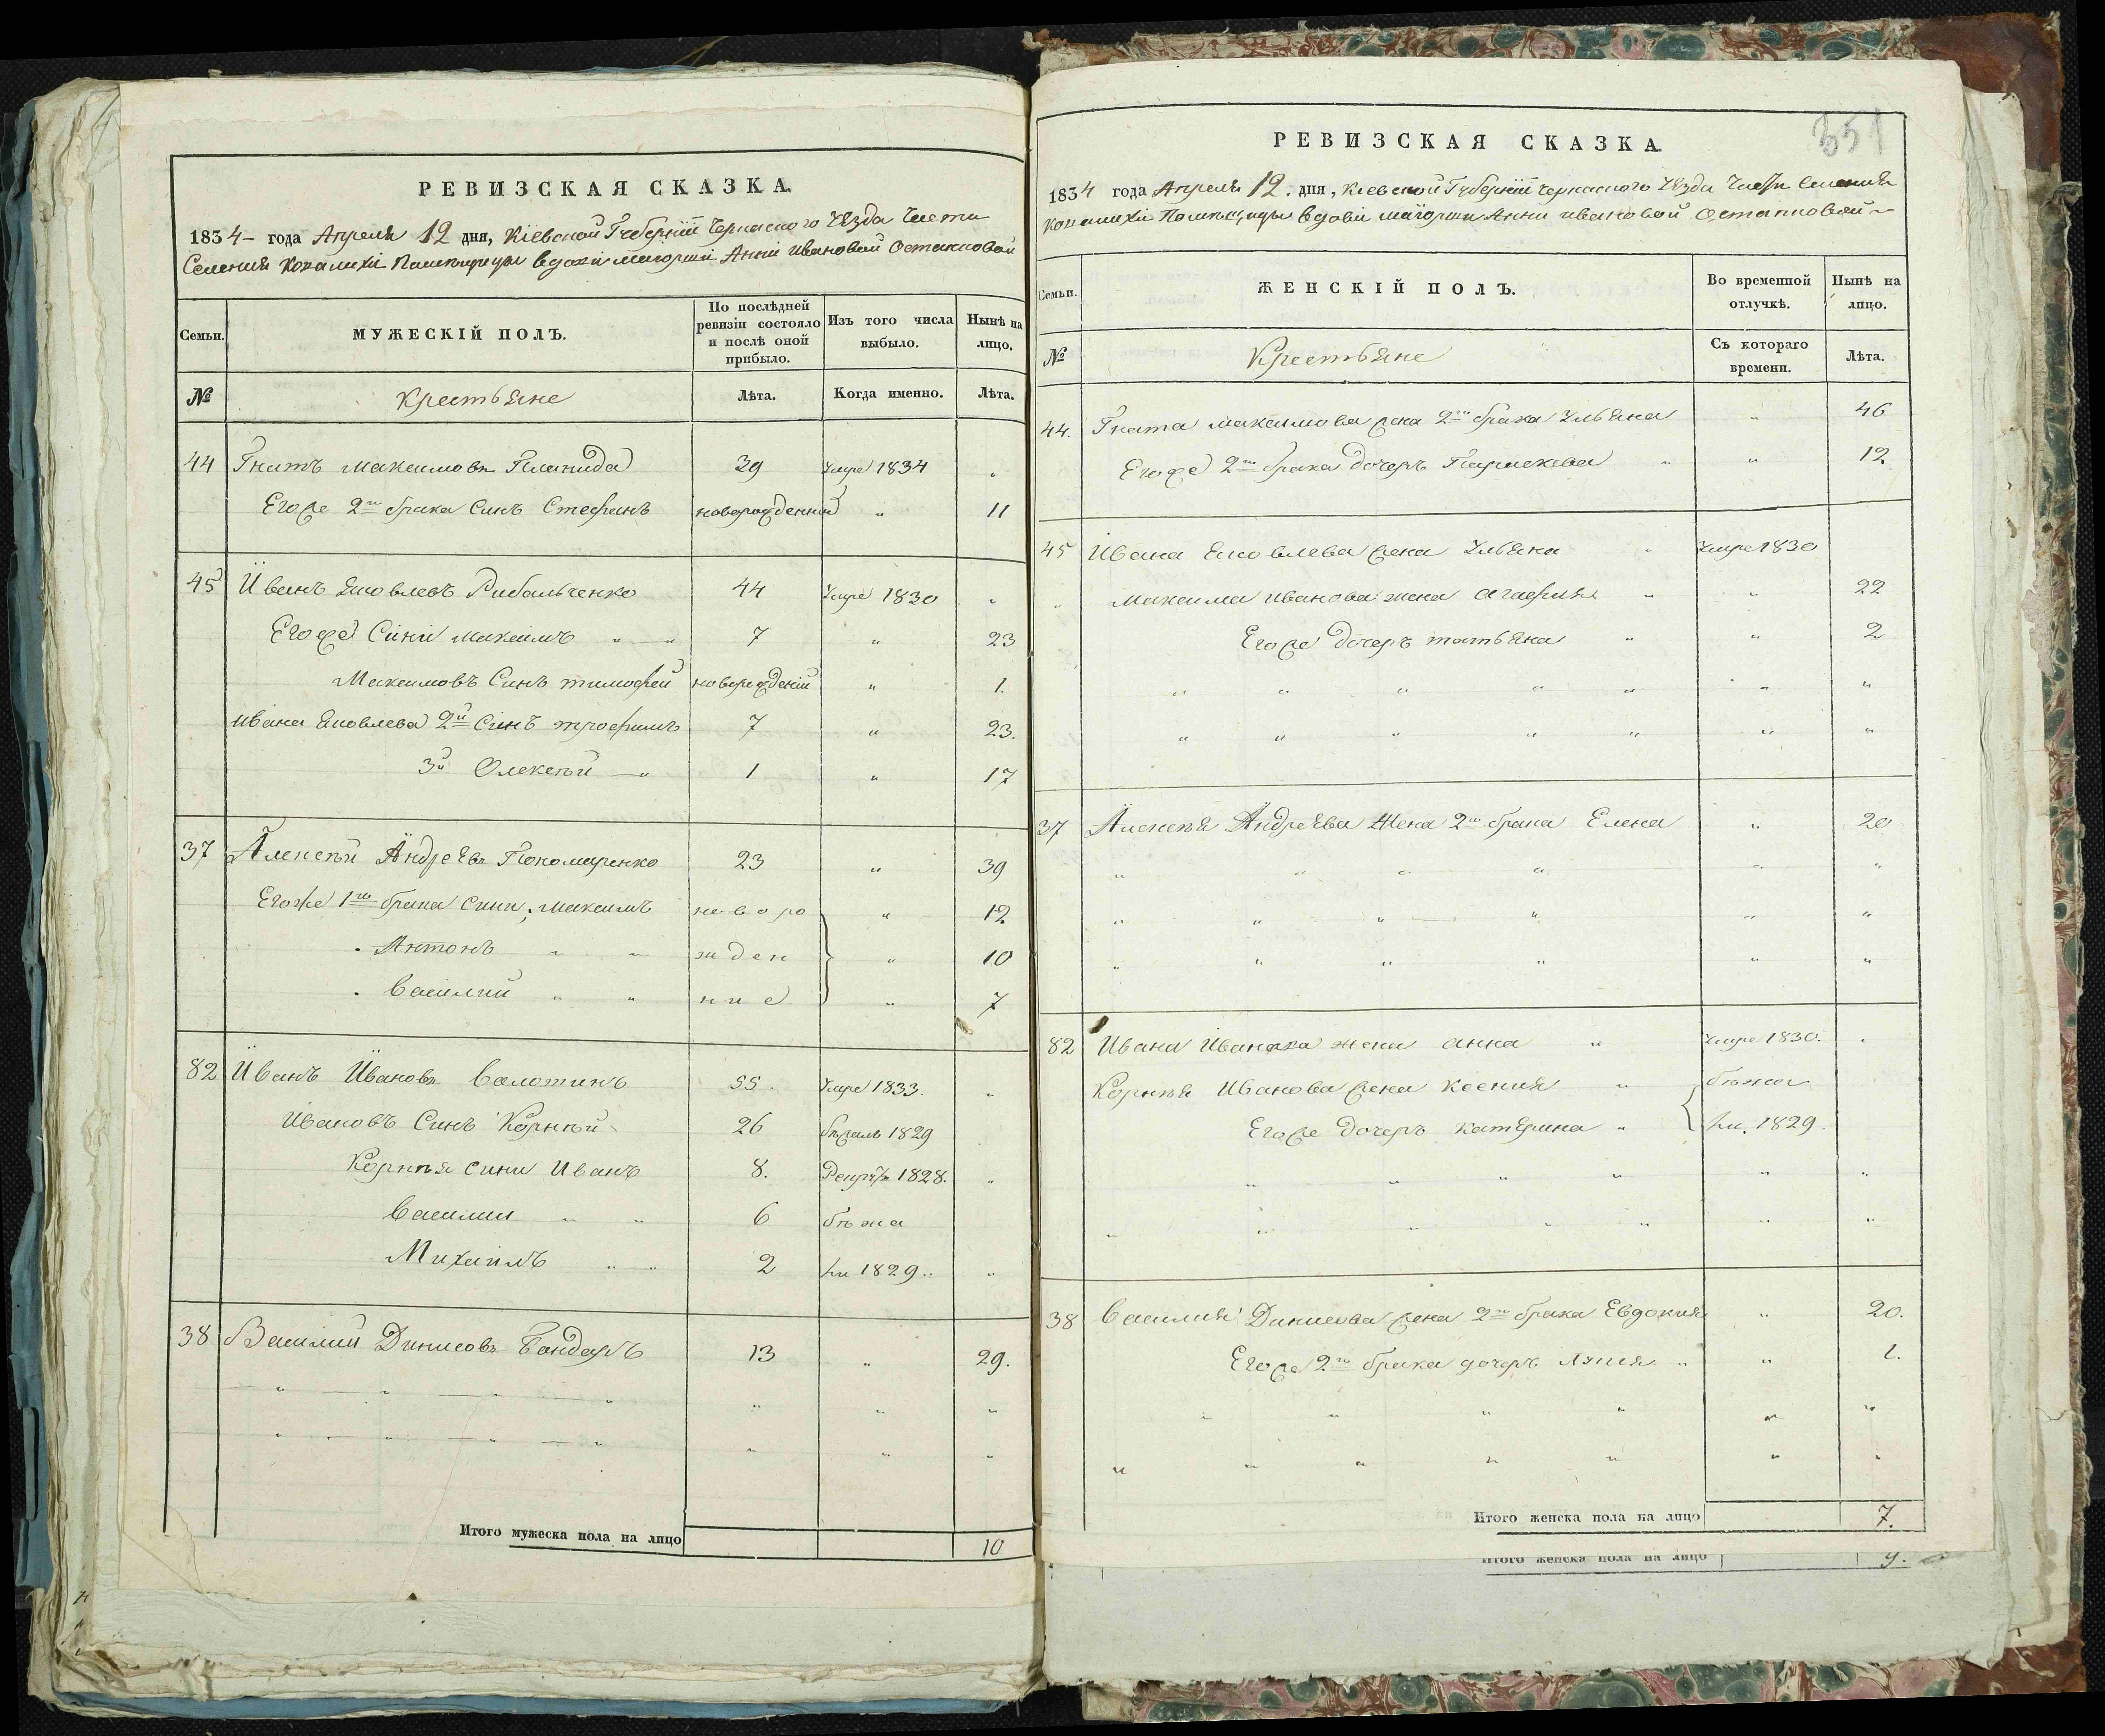 РЕВИЗСКАЯ СКАЗКА.
1834 года Апреля 12 дня, Кіевской Губерніи Черкаского Уѣзда Части
Селенія Помѣщицы вдови маіорши Анни Ивановой Остаповой
Семьи. МУЖЕСКІЙ ПОЛЪ. По послѣдней ревизіи состояло и послѣ оной прибыло. Изъ того числа выбыло. Нынѣ на лицо.
№ Крестьяне Лѣта. Когда именно. Лѣта.
44 Гнатъ Максимовъ 39 умре 1834 "
Егоже 2го брака Синъ Стефанъ новорожденний " 11
45 Иванъ Яковлевъ Рибальченко 44 умре 1830 "
Егоже Сини Максимъ " " 7 " 23
Максимовъ Синъ тимофей новорожденій " 1.
Ивана Яковлева 2й Синъ трофимъ 7 " 23.
3й Олексѣй " 1 " 17
37 Алексѣй Андреевъ Пономаренко 23 " 39
Егоже 1го брака сини, Максимъ новоро " 12
Антонъ " " жден " 10
Василий " " ние " 7
82 Иванъ Ивановъ 55. умре 1833. "
Ивановъ Синъ Корнѣй 26 бѣжалъ 1829
Корнѣя сини Иванъ 8. 1828. "
Василий " " 6 бѣжа
Михаилъ " " 2 ли 1829 " "
38 Василий Динисовъ Бандаръ 13 " 29.
" " " " " " "
" " " " " " "
Итого мужеска пола на лицо 10
351
РЕВИЗСКАЯ СКАЗКА.
1834 года Апреля 12. дня, Кіевской Губерніи Черкаского Уѣзда Части Селенія
Помѣщицы вдови маіорши Анни Ивановой Остаповой
Семьи. ЖЕНСКІЙ ПОЛЪ. Во временной отлучкѣ. Нынѣ на лицо.
№ Крестьяне Съ котораго времени. Лѣта.
44. Гната Максимова жена 2го брака Ульяна " 46
Егоже 2го брака дочеръ Параскева " " 12
45 Ивана Яковлева жена Ульяна " умре 1830
" Максима Иванова жена Агафия " " 22
Егоже дочеръ татьяна " " 2
" " " " " " "
" " " " " " "
37 Алексѣя Андреева Жена 2го брака Елена " 20
" " " " " "
" " " " " "
" " " " " "
82 Ивана Иванова жена анна " умре 1830. "
Корнѣя Иванова жена ксения " бѣжа
Егоже дочеръ катерина " ли. 1829
" " " " " "
" " " " " " "
38 Василия Динисова жена 2го брака Евдокия " 20.
Егоже 2го брака дочеръ " " 1.
" " " " " "
" " " " " " "
Итого женска пола на лицо 7.
Итого женска пола на лицо 9.